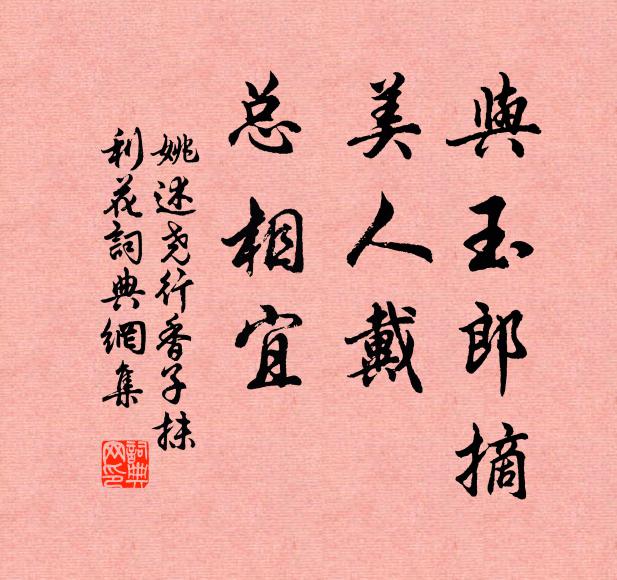 與玉郎摘
美人戴
总相宜
姚述尧行香子抹
利花詞典網集
詞典
网印